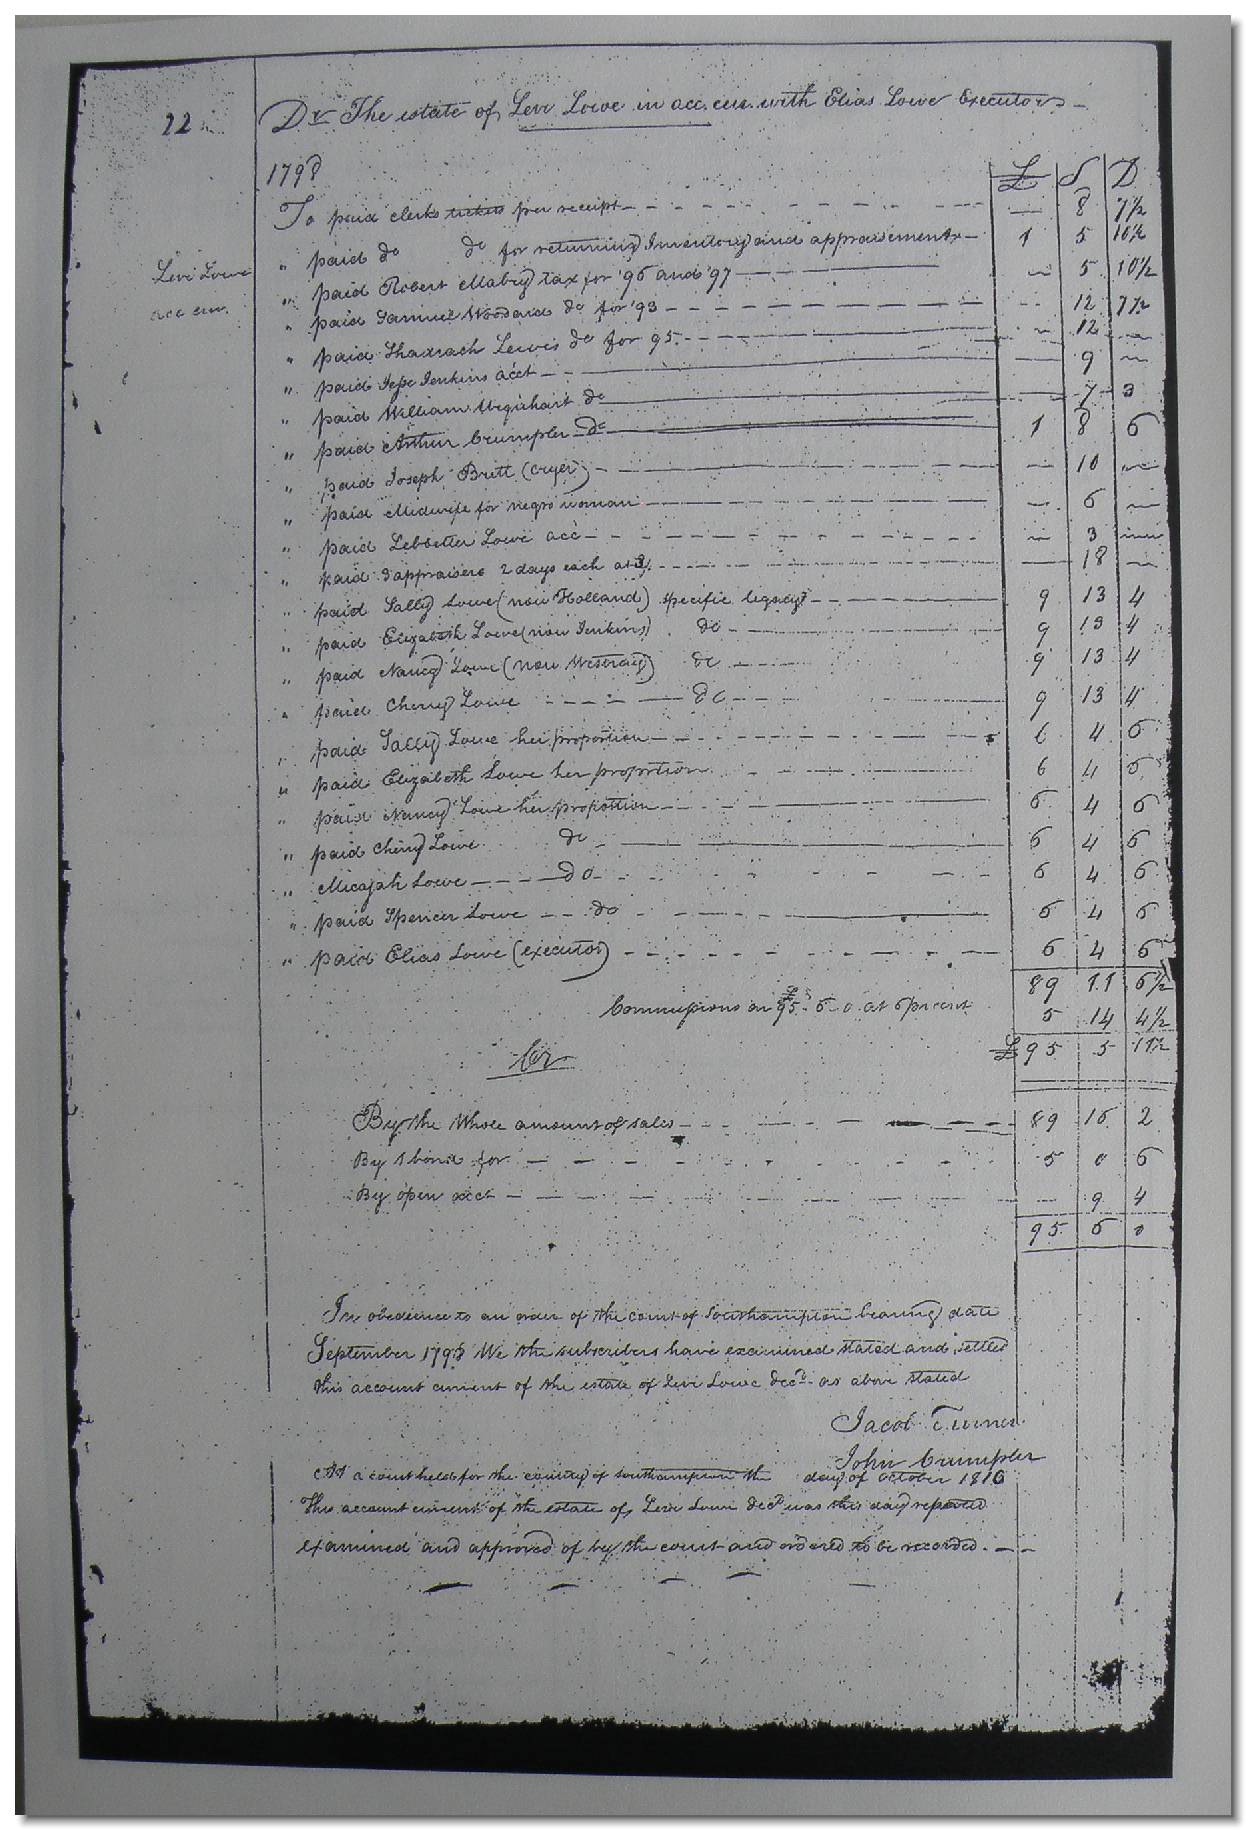 22
Dr The estate of Levi Lowe in acc. cur. with Elias Lowe Executor
1798 £ S D
Levi Lowe
acc cur.
To paid clerks tickets per receipt — 8 7½
" paid do do for returning Inventory and appraisements 1 5 10½
" paid Robert Mabry tax for '96 and '97 — 5 10½
" paid Samuel Woodard do for '93 — 12 7½
" paid Shaxrach Lewis do for 95. — 12 —
" paid Jesse Jenkins acct — 9 —
" paid William Urquhart do — 7 3
" paid Arthur Crumpler do 1 8 6
" paid Joseph Britt (cryer) — 10 —
" paid Midwife for negro woman — 6 —
" paid Ledbetter Lowe acc — 3 —
" paid 3 appraisers 2 days each at 3/. — 18 —
" paid Sally Lowe (now Holland) specific legacy 9 13 4
" paid Elizabeth Lowe (now Jenkins) do 9 13 4
" paid Nancy Lowe (now Westray) do 9 13 4
" paid Cherry Lowe do 9 13 4
" paid Sally Lowe her proportion 6 4 6
" paid Elizabeth Lowe her proportion 6 4 6
" paid Nancy Lowe her proportion 6 4 6
" paid Cherry Lowe do 6 4 6
" Micajah Lowe do 6 4 6
" paid Spencer Lowe do 6 4 6
" paid Elias Lowe (executor) 6 4 6
89 11 6½
Commissions on £95. 6. 0. at 6 pr cent 5 14 4½
Cr £ 95 5 11½
By the whole amount of sales 89 16 2
By 1 bond for 5 0 6
By open acct — 9 4
95 6 0
In obedience to an order of the court of Southampton bearing date
September 1798 We the subscribers have examined stated and settled
this account current of the estate of Levi Lowe decd. as above stated
Jacob Turner
John Crumpler
At a court held for the county of Southampton the day of October 1816
This account current of the estate of Levi Lowe decd was this day reported
examined and approved of by the court and ordered to be recorded.